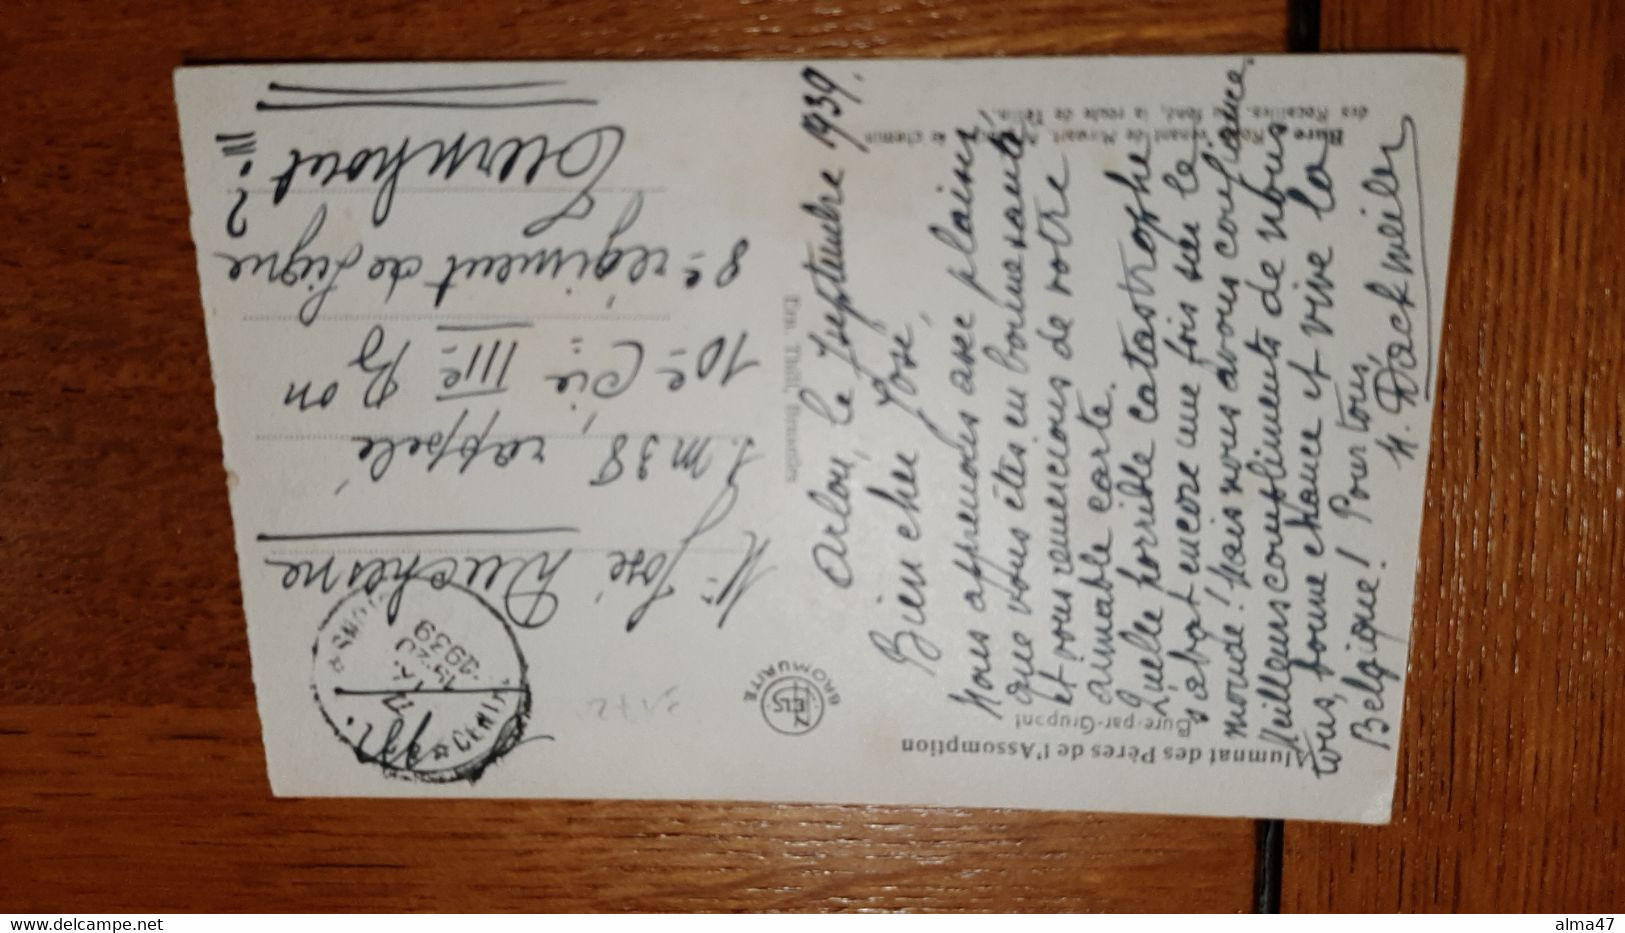 Alumnat des Pères de l'Assomption
Bure-par-Grupont
Bure
des Rocailles. Au fond, la route de Tellin.
Arlon, le septembre 1939.
Bien cher José,
Nous apprenons avec plaisir
que vous êtes en bonne santé
et vous remercions de votre
aimable carte.
Quelle horrible catastrophe
s'abat encore une fois sur le
monde! Mais nous avons confiance.
Meilleurs compliments de nous
tous, bonne chance et vive la
Belgique! Pour tous,
BROMURITE
NELS
Ern. Thill, Bruxelles
1939
Mr José Duchesne
S.M 38, rappelé
10e Cie IIIe Bon
8e régiment de Ligne
?
alma47
www.delcampe.net